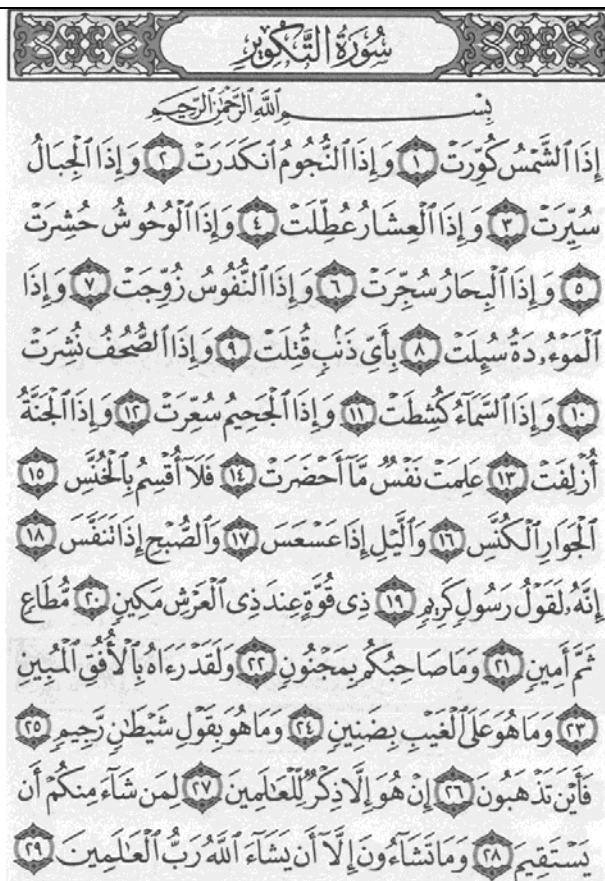 سُورَةُ التَّكْوِيرِ
بِسْمِ ٱللَّهِ ٱلرَّحْمَٰنِ ٱلرَّحِيمِ
إِذَا ٱلشَّمْسُ كُوِّرَتْ ١ وَإِذَا ٱلنُّجُومُ ٱنكَدَرَتْ ٢ وَإِذَا ٱلْجِبَالُ
سُيِّرَتْ ٣ وَإِذَا ٱلْعِشَارُ عُطِّلَتْ ٤ وَإِذَا ٱلْوُحُوشُ حُشِرَتْ
٥ وَإِذَا ٱلْبِحَارُ سُجِّرَتْ ٦ وَإِذَا ٱلنُّفُوسُ زُوِّجَتْ ٧ وَإِذَا
ٱلْمَوْءُۥدَةُ سُئِلَتْ ٨ بِأَيِّ ذَنۢبٍ قُتِلَتْ ٩ وَإِذَا ٱلصُّحُفُ نُشِرَتْ
١٠ وَإِذَا ٱلسَّمَآءُ كُشِطَتْ ١١ وَإِذَا ٱلْجَحِيمُ سُعِّرَتْ ١٢ وَإِذَا ٱلْجَنَّةُ
أُزْلِفَتْ ١٣ عَلِمَتْ نَفْسٌ مَّآ أَحْضَرَتْ ١٤ فَلَآ أُقْسِمُ بِٱلْخُنَّسِ ١٥
ٱلْجَوَارِ ٱلْكُنَّسِ ١٦ وَٱلَّيْلِ إِذَا عَسْعَسَ ١٧ وَٱلصُّبْحِ إِذَا تَنَفَّسَ ١٨
إِنَّهُۥ لَقَوْلُ رَسُولٍ كَرِيمٍ ١٩ ذِى قُوَّةٍ عِندَ ذِى ٱلْعَرْشِ مَكِينٍ ٢٠ مُّطَاعٍ
ثَمَّ أَمِينٍ ٢١ وَمَا صَاحِبُكُم بِمَجْنُونٍ ٢٢ وَلَقَدْ رَءَاهُ بِٱلْأُفُقِ ٱلْمُبِينِ
٢٣ وَمَا هُوَ عَلَى ٱلْغَيْبِ بِضَنِينٍ ٢٤ وَمَا هُوَ بِقَوْلِ شَيْطَٰنٍ رَّجِيمٍ ٢٥
فَأَيْنَ تَذْهَبُونَ ٢٦ إِنْ هُوَ إِلَّا ذِكْرٌ لِّلْعَٰلَمِينَ ٢٧ لِمَن شَآءَ مِنكُمْ أَن
يَسْتَقِيمَ ٢٨ وَمَا تَشَآءُونَ إِلَّآ أَن يَشَآءَ ٱللَّهُ رَبُّ ٱلْعَٰلَمِينَ ٢٩